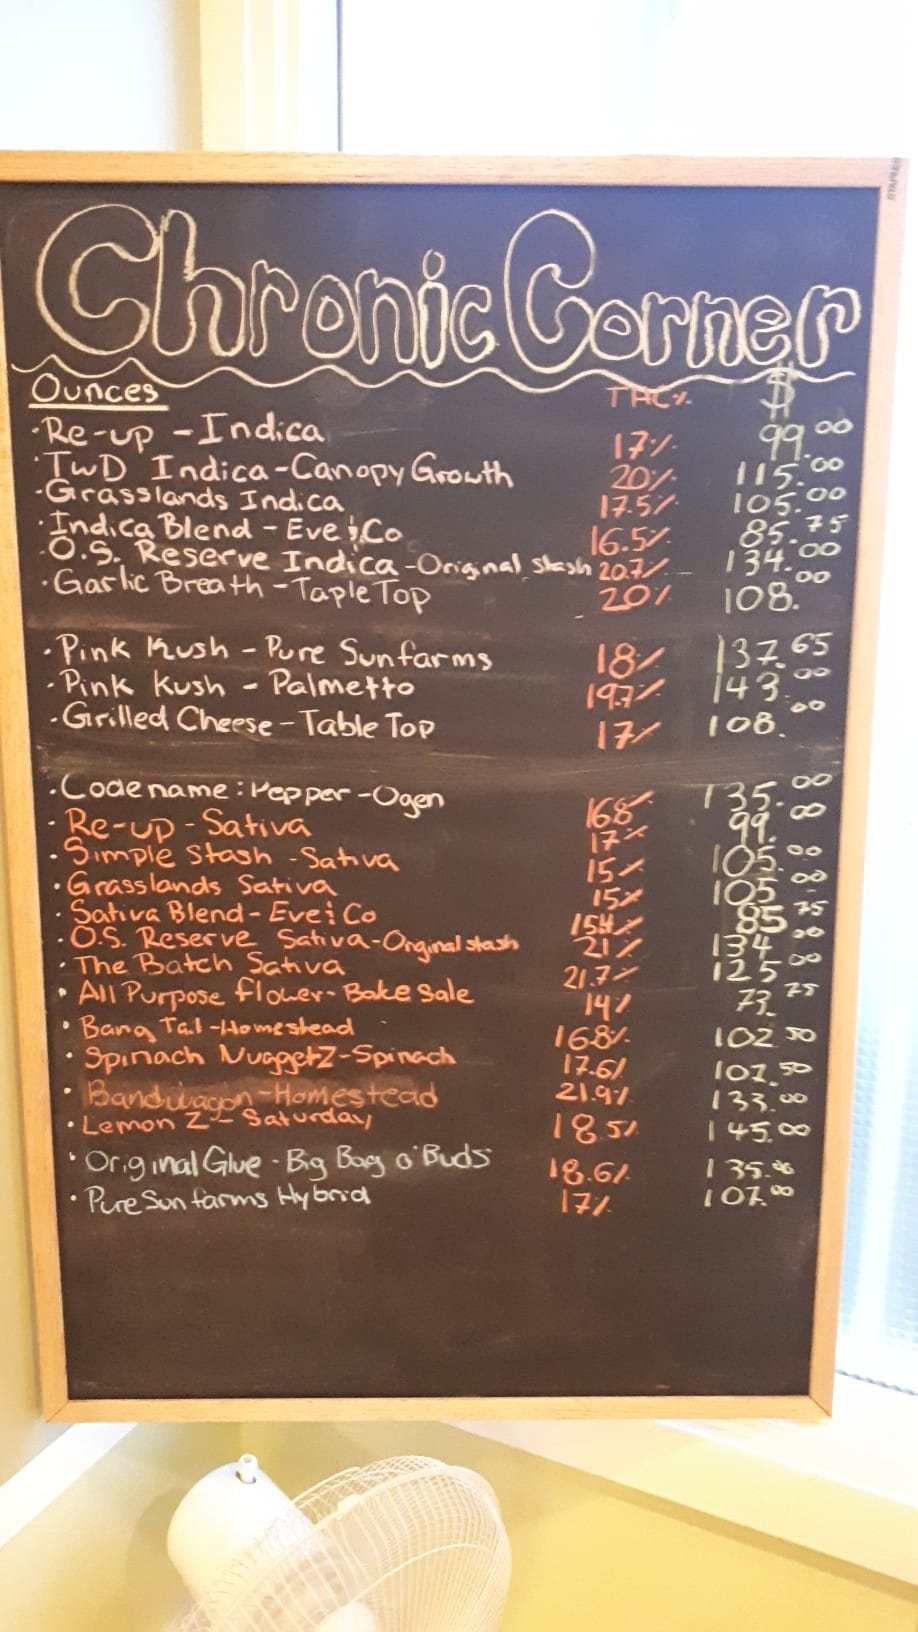 Chronic Corner
Ounces THC% $
·Re-up - Indica 17% 99.00
·TWD Indica-Canopy Growth 20% 115.00
·Grasslands Indica 17.5% 105.00
·Indica Blend - Eve & Co 16.5% 85.75
·O.S. Reserve Indica-Original Stash 20.7% 134.00
·Garlic Breath - TapleTop 20% 108.00
·Pink Kush - Pure Sunfarms 18% 137.65
·Pink Kush - Palmetto 19.7% 143.00
·Grilled Cheese - Table Top 17% 108.00
·Codename: Pepper - Ogen 168% 135.00
·Re-up - Sativa 17% 99.00
·Simple Stash - Sativa 15% 105.00
·Grasslands Sativa 15% 105.00
·Sativa Blend - Eve & Co 154% 85.75
·O.S. Reserve Sativa-Orginal stash 21% 134.00
·The Batch Sativa 21.7% 125.00
·All Purpose flower- Bake Sale 14% 73.75
·Bang Tail -Homestead 16.8% 102.50
·Spinach NuggetZ-Spinach 17.6% 107.50
·Bandwagon-Homestead 21.9% 133.00
·Lemon Z - Saturday 18.5% 145.00
·Original Glue - Big Bag o' Buds 18.6% 135.00
·Pure Sunfarms Hybrid 17% 107.00